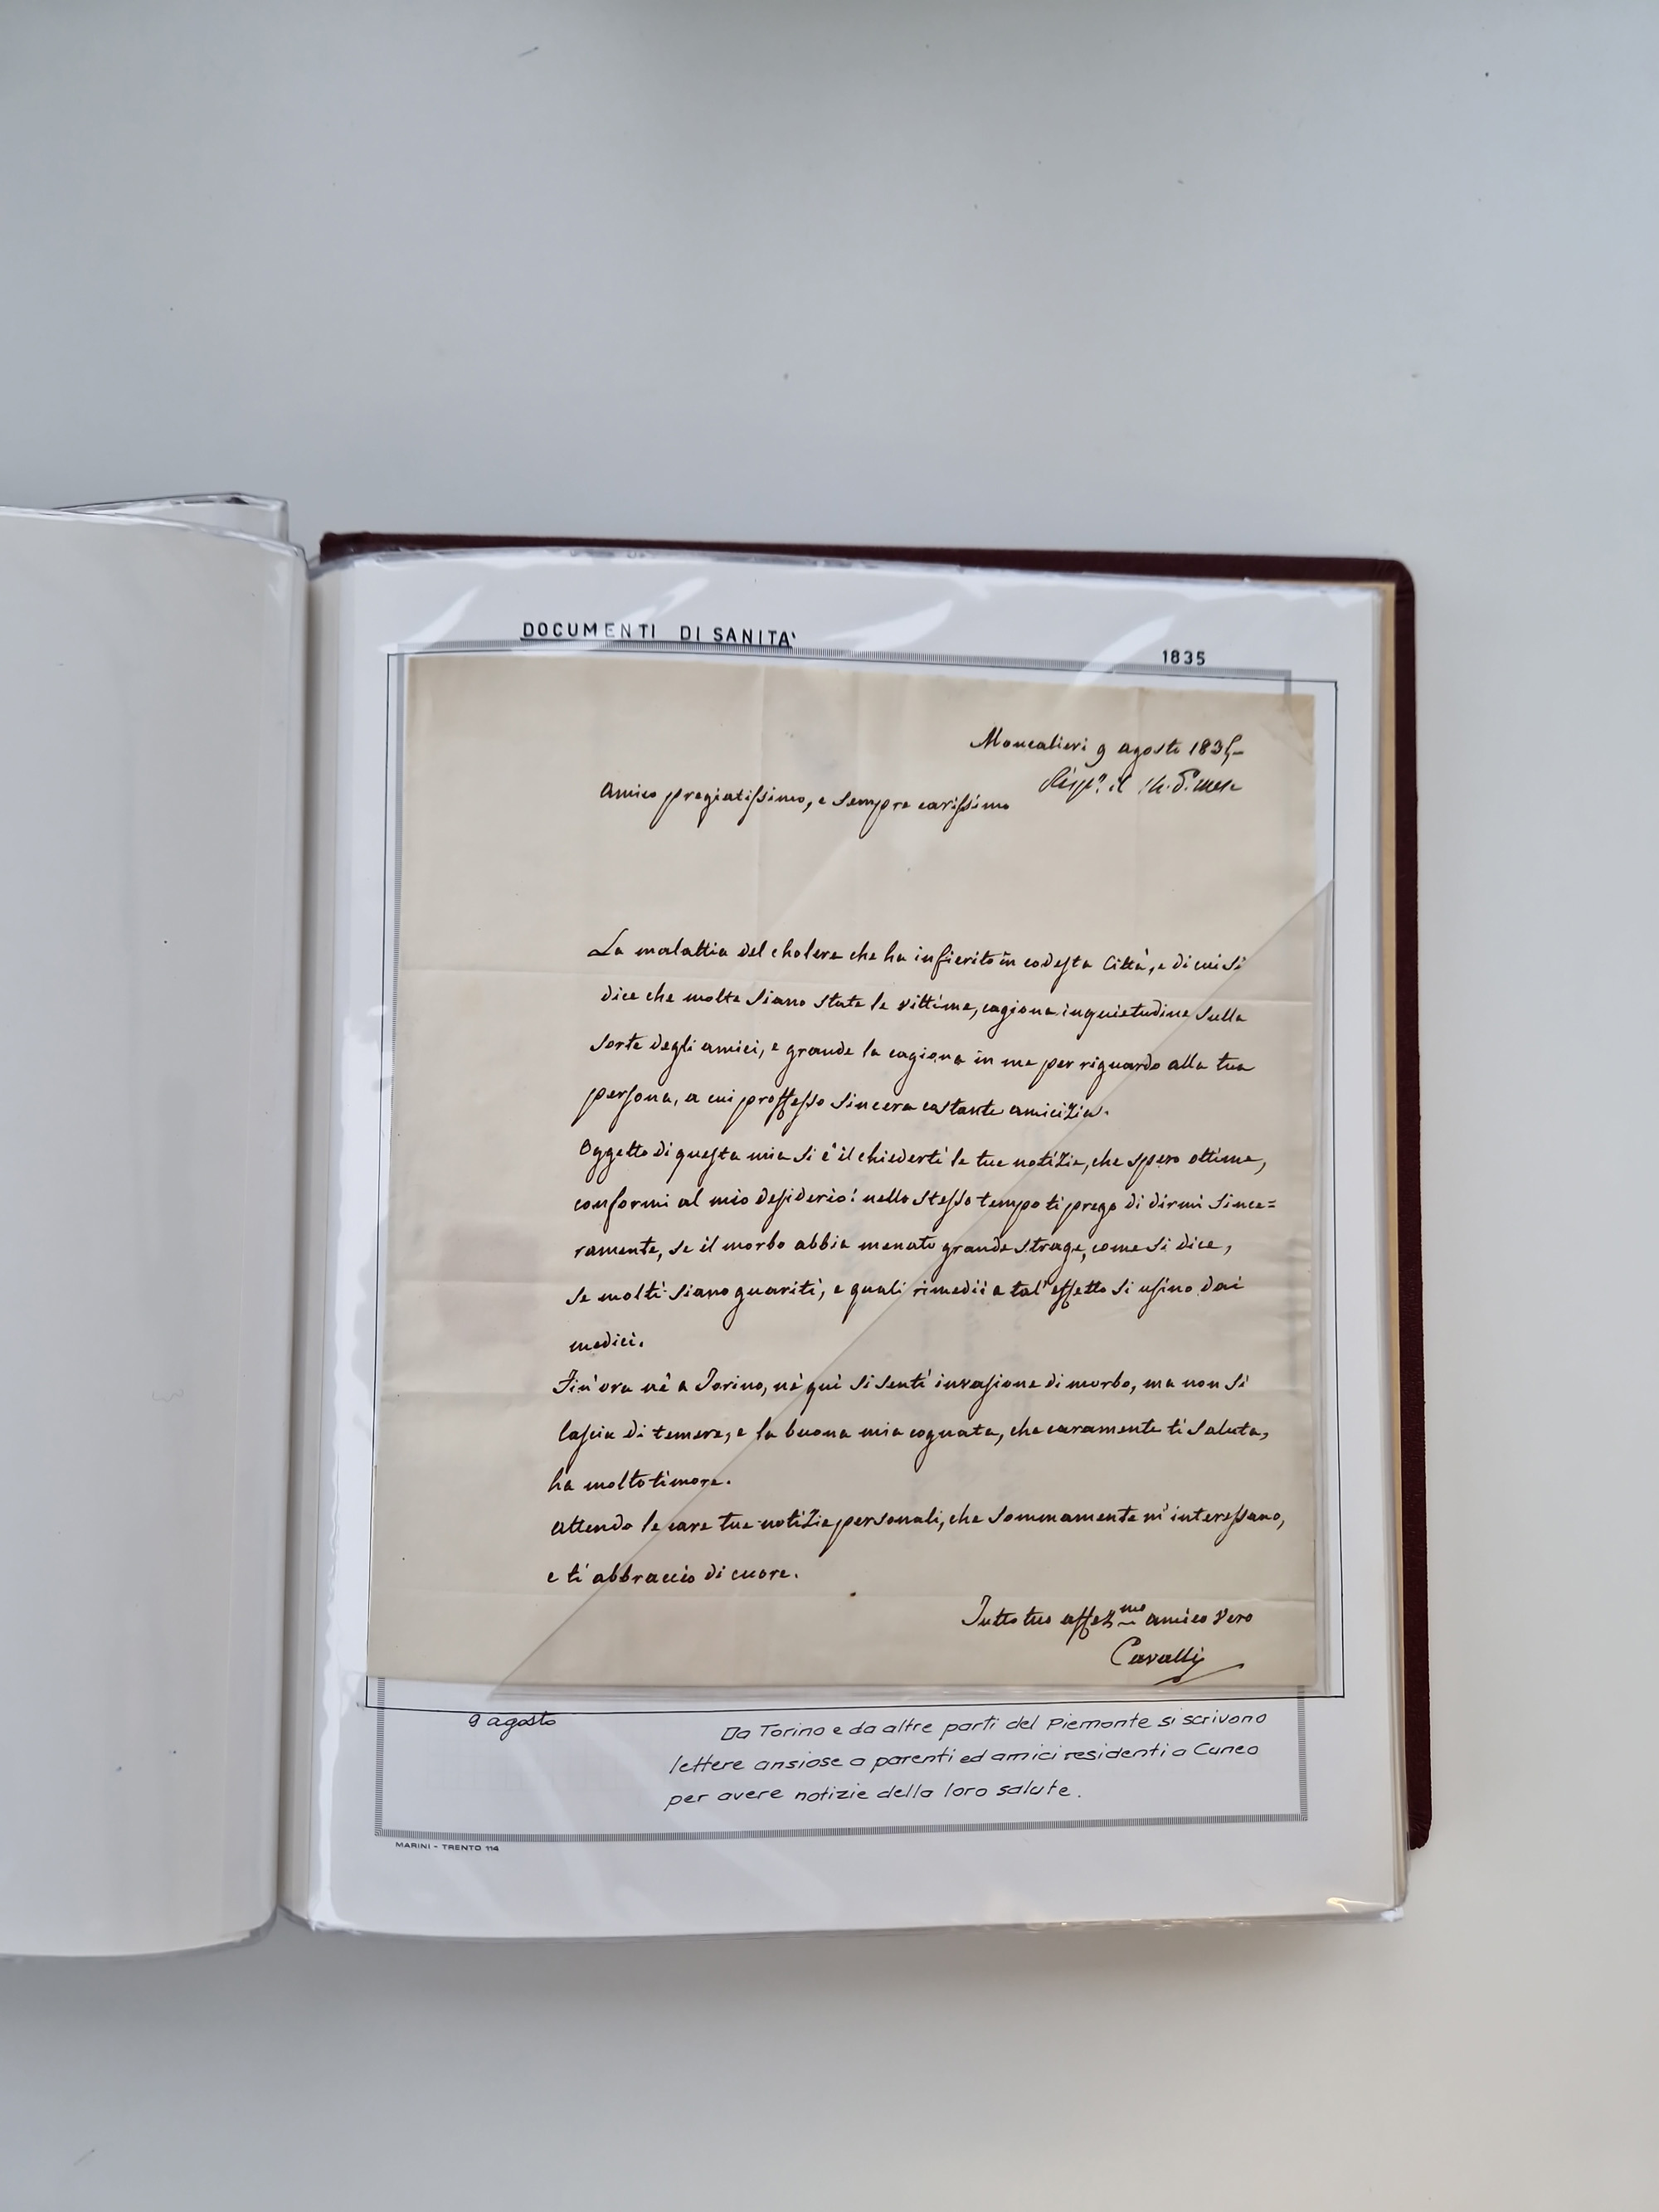 DOCUMENTI DI SANITA'
1835
Moncalieri 9 agosto 1835
Risp. il 14. d. mese
Amico pregiatissimo, e sempre carissimo
La malattia del cholera che ha infierito in codesta Città, e di cui si
dice che molte siano state le vittime, cagiona inquietudine sulla
sorte degli amici, e grande la cagiona in me per riguardo alla tua
persona, a cui proffesso sincera costante amicizia.
Oggetto di questa mia si è il chiederti le tue notizie, che spero ottime,
conformi al mio desiderio: nello stesso tempo ti prego di dirmi since=
ramente, se il morbo abbia menato grande strage, come si dice,
se molti siano guariti, e quali rimedii a tal'effetto si usino dai
medici.
Fin'ora nè a Torino, nè quì si sentì invasione di morbo, ma non si
lascia di temere, e la buona mia cognata, che caramente ti saluta,
ha molto timore.
Attendo le care tue notizie personali, che sommamente m'interessano,
e ti abbraccio di cuore.
Tutto tuo affez.mo amico vero
Cavalli
9 agosto
Da Torino e da altre parti del Piemonte si scrivono
lettere ansiose a parenti ed amici residenti a Cuneo
per avere notizie della loro salute.
MARINI - TRENTO 114